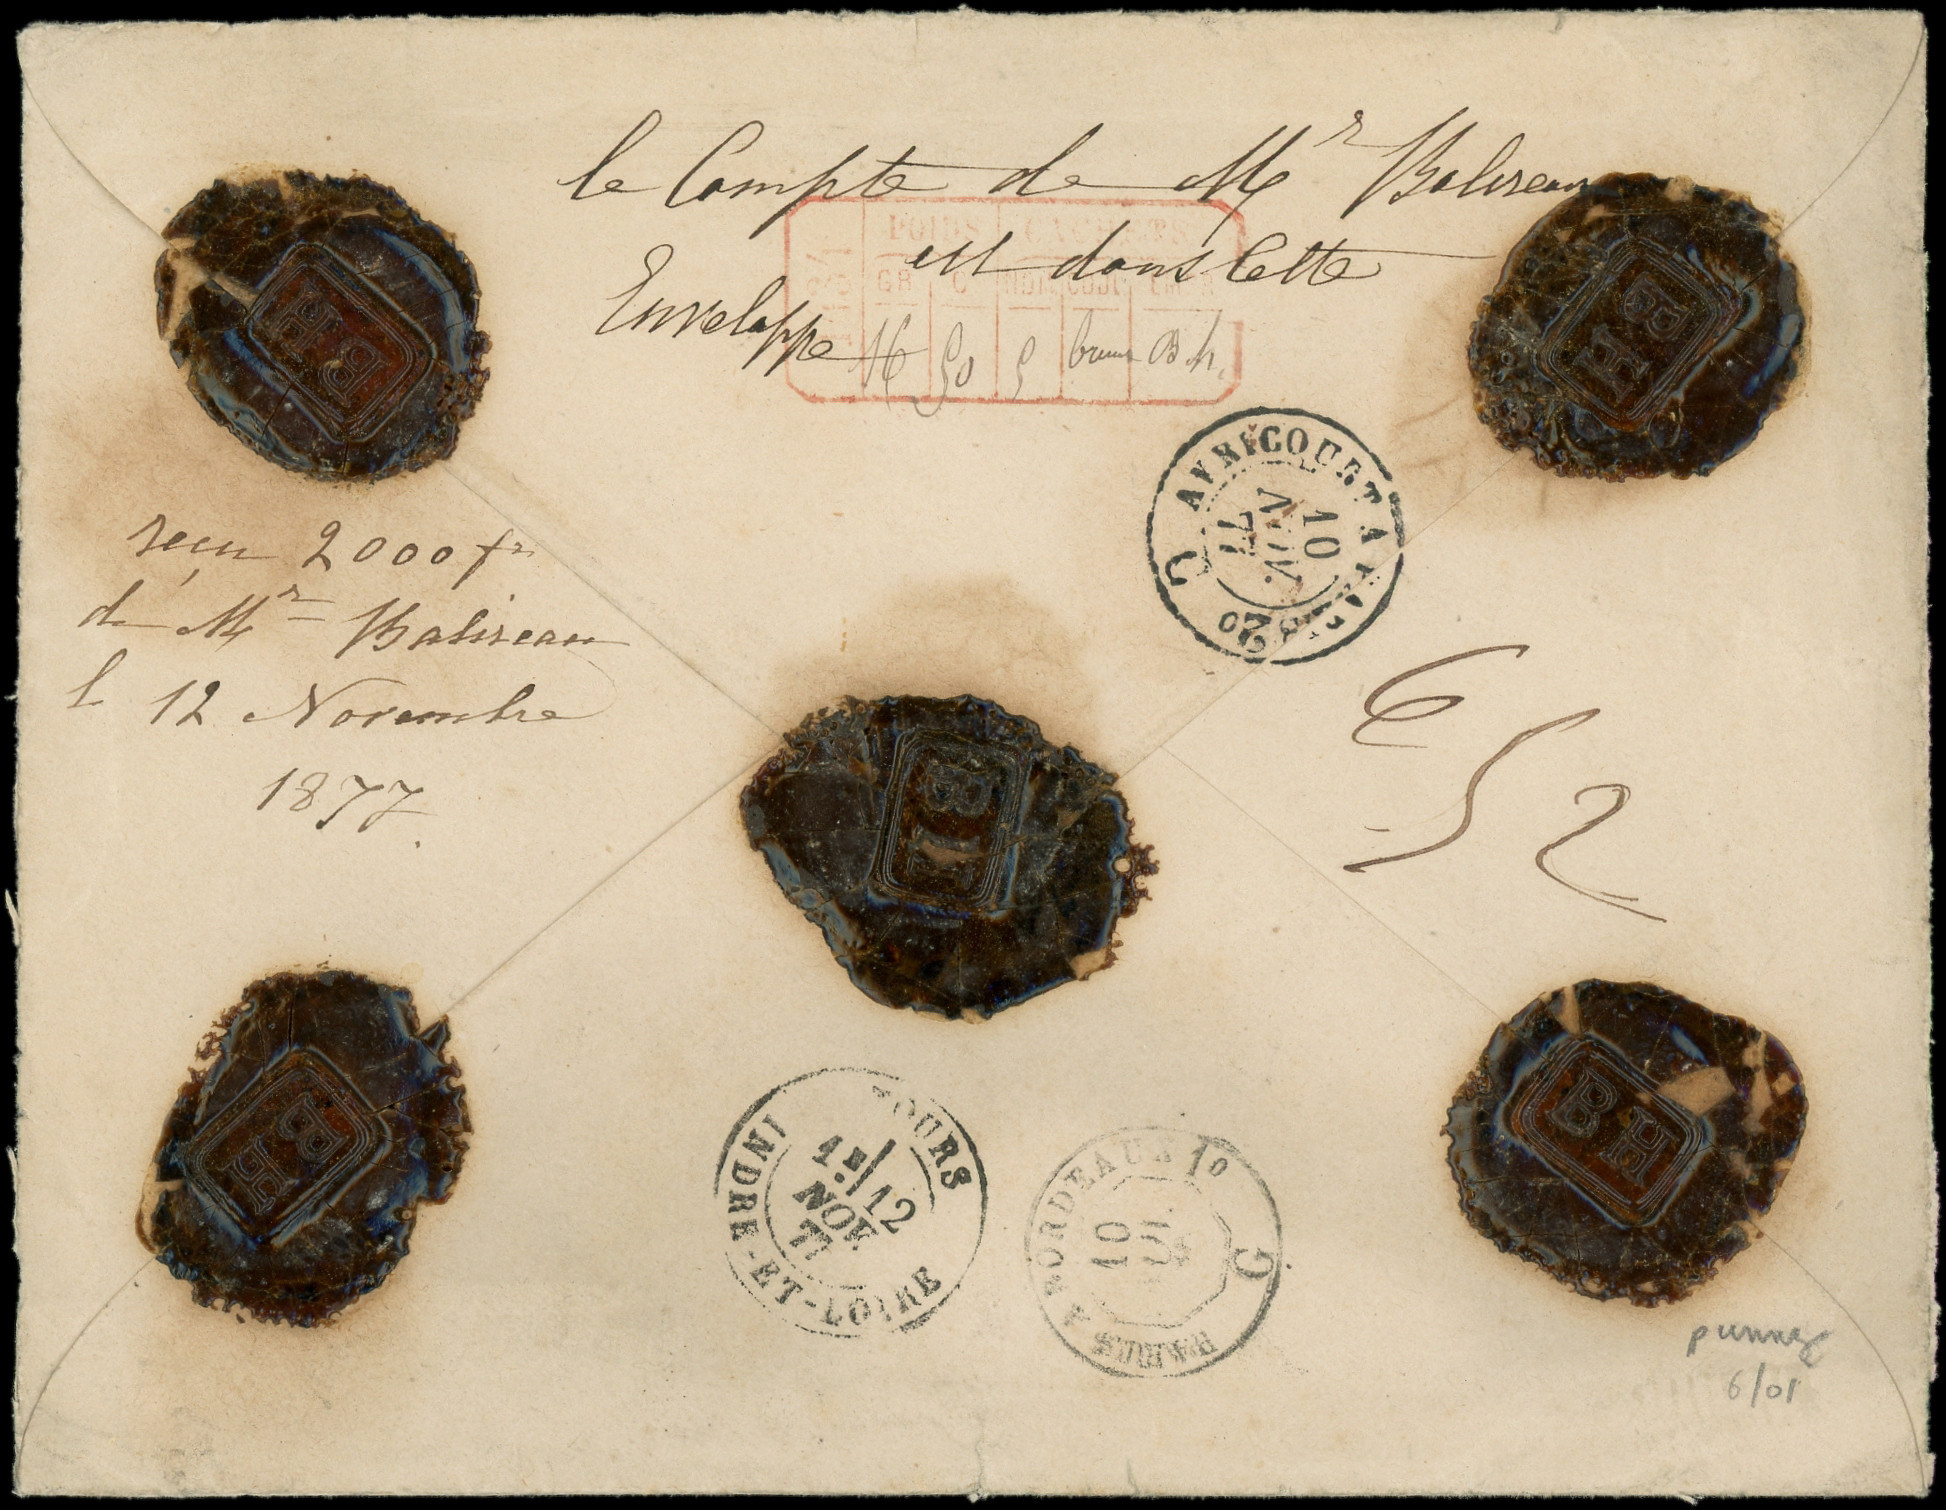 le Compte de Mr
est dans Cette
Enveloppe
POIDS CACHETS
GR C
16 50 5 brune B h.
reçu 2000 fr
de Mr
le 12 Novembre
1877.
AVRICOURT A PARIS
10
NOV.
77
C
2o
652
BH
BH
BH
BH
BH
TOURS
1E/12
NOV
77
INDRE-ET-LOIRE
PARIS A BORDEAUX 1o
10
G
6/01